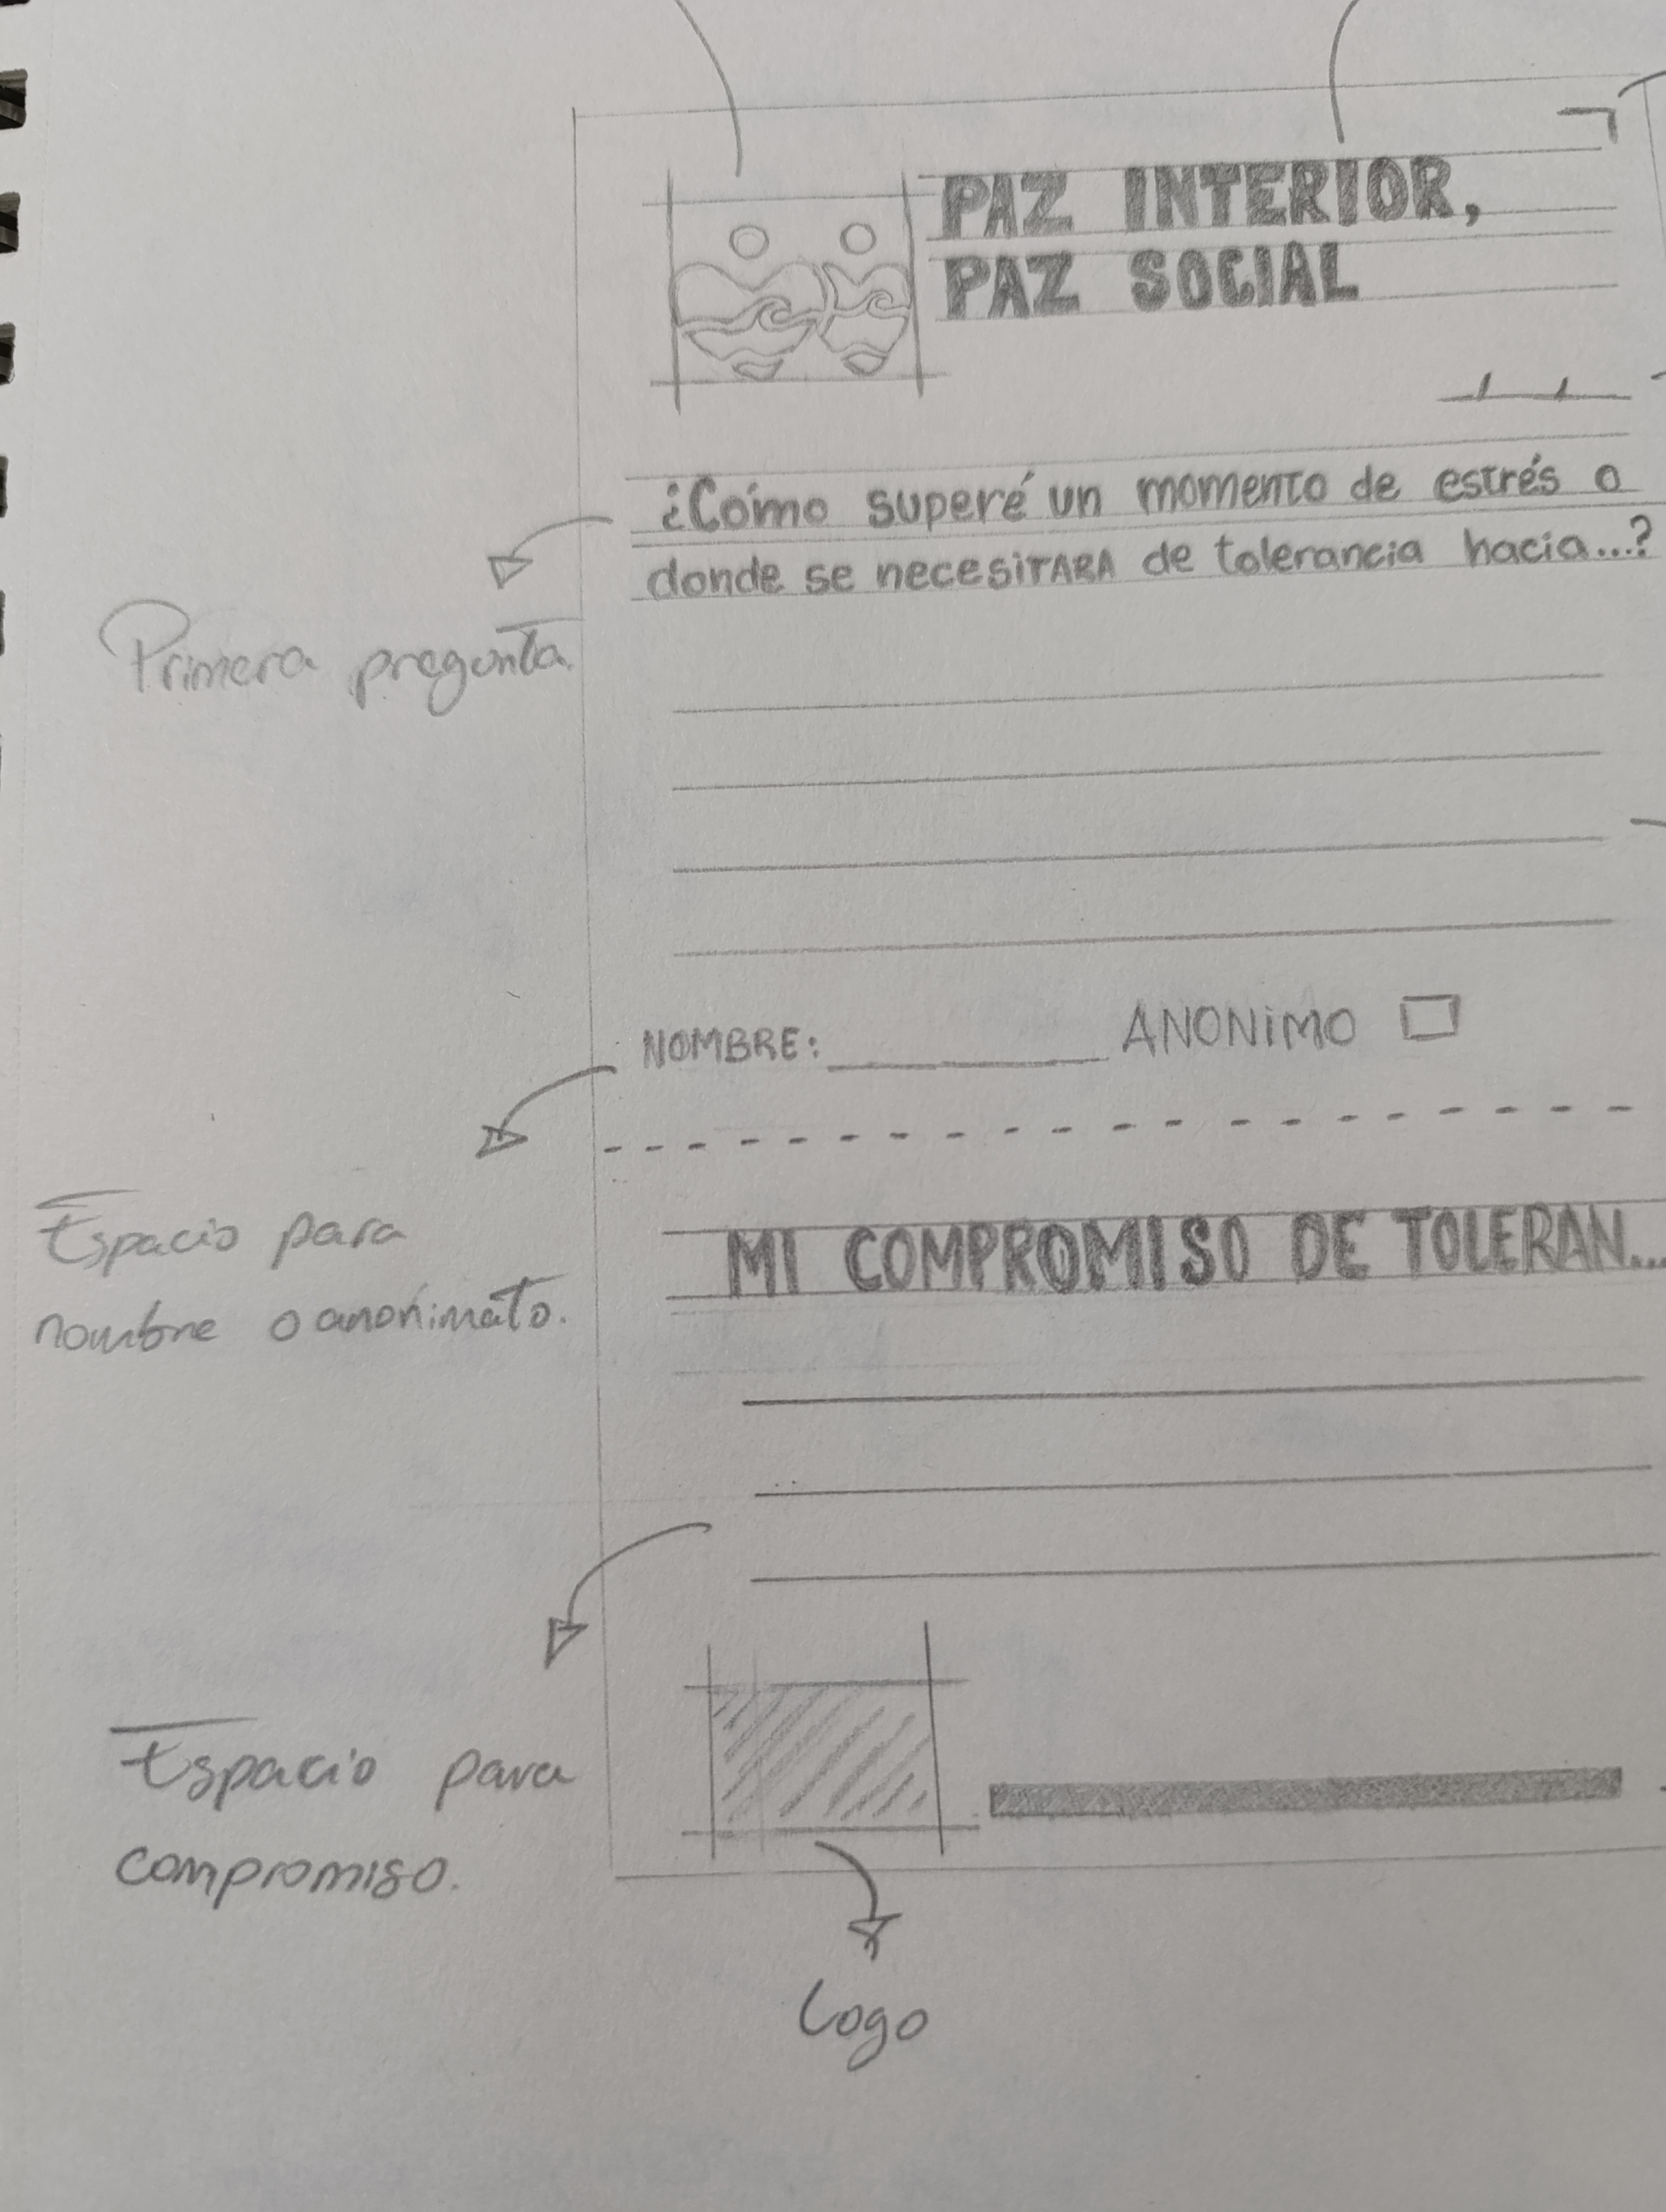 PAZ INTERIOR,
PAZ SOCIAL
¿Cómo superé un momento de estrés o
donde se necesiTARA de tolerancia hacia...?
Primera pregunta.
NOMBRE: ANONiMO
Espacio para
nombre o anonimato.
MI COMPROMISO DE TOLERAN...
Espacio para
compromiso.
Logo